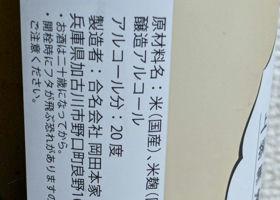 原材料名：米(国産)、米麹(
醸造アルコール
アルコール分：20度
製造者：合名会社 岡田本家
兵庫県加古川市野口町良野1
・お酒は二十歳になってから。
・開栓時にフタが飛ぶ恐れがありますの
ご注意ください。